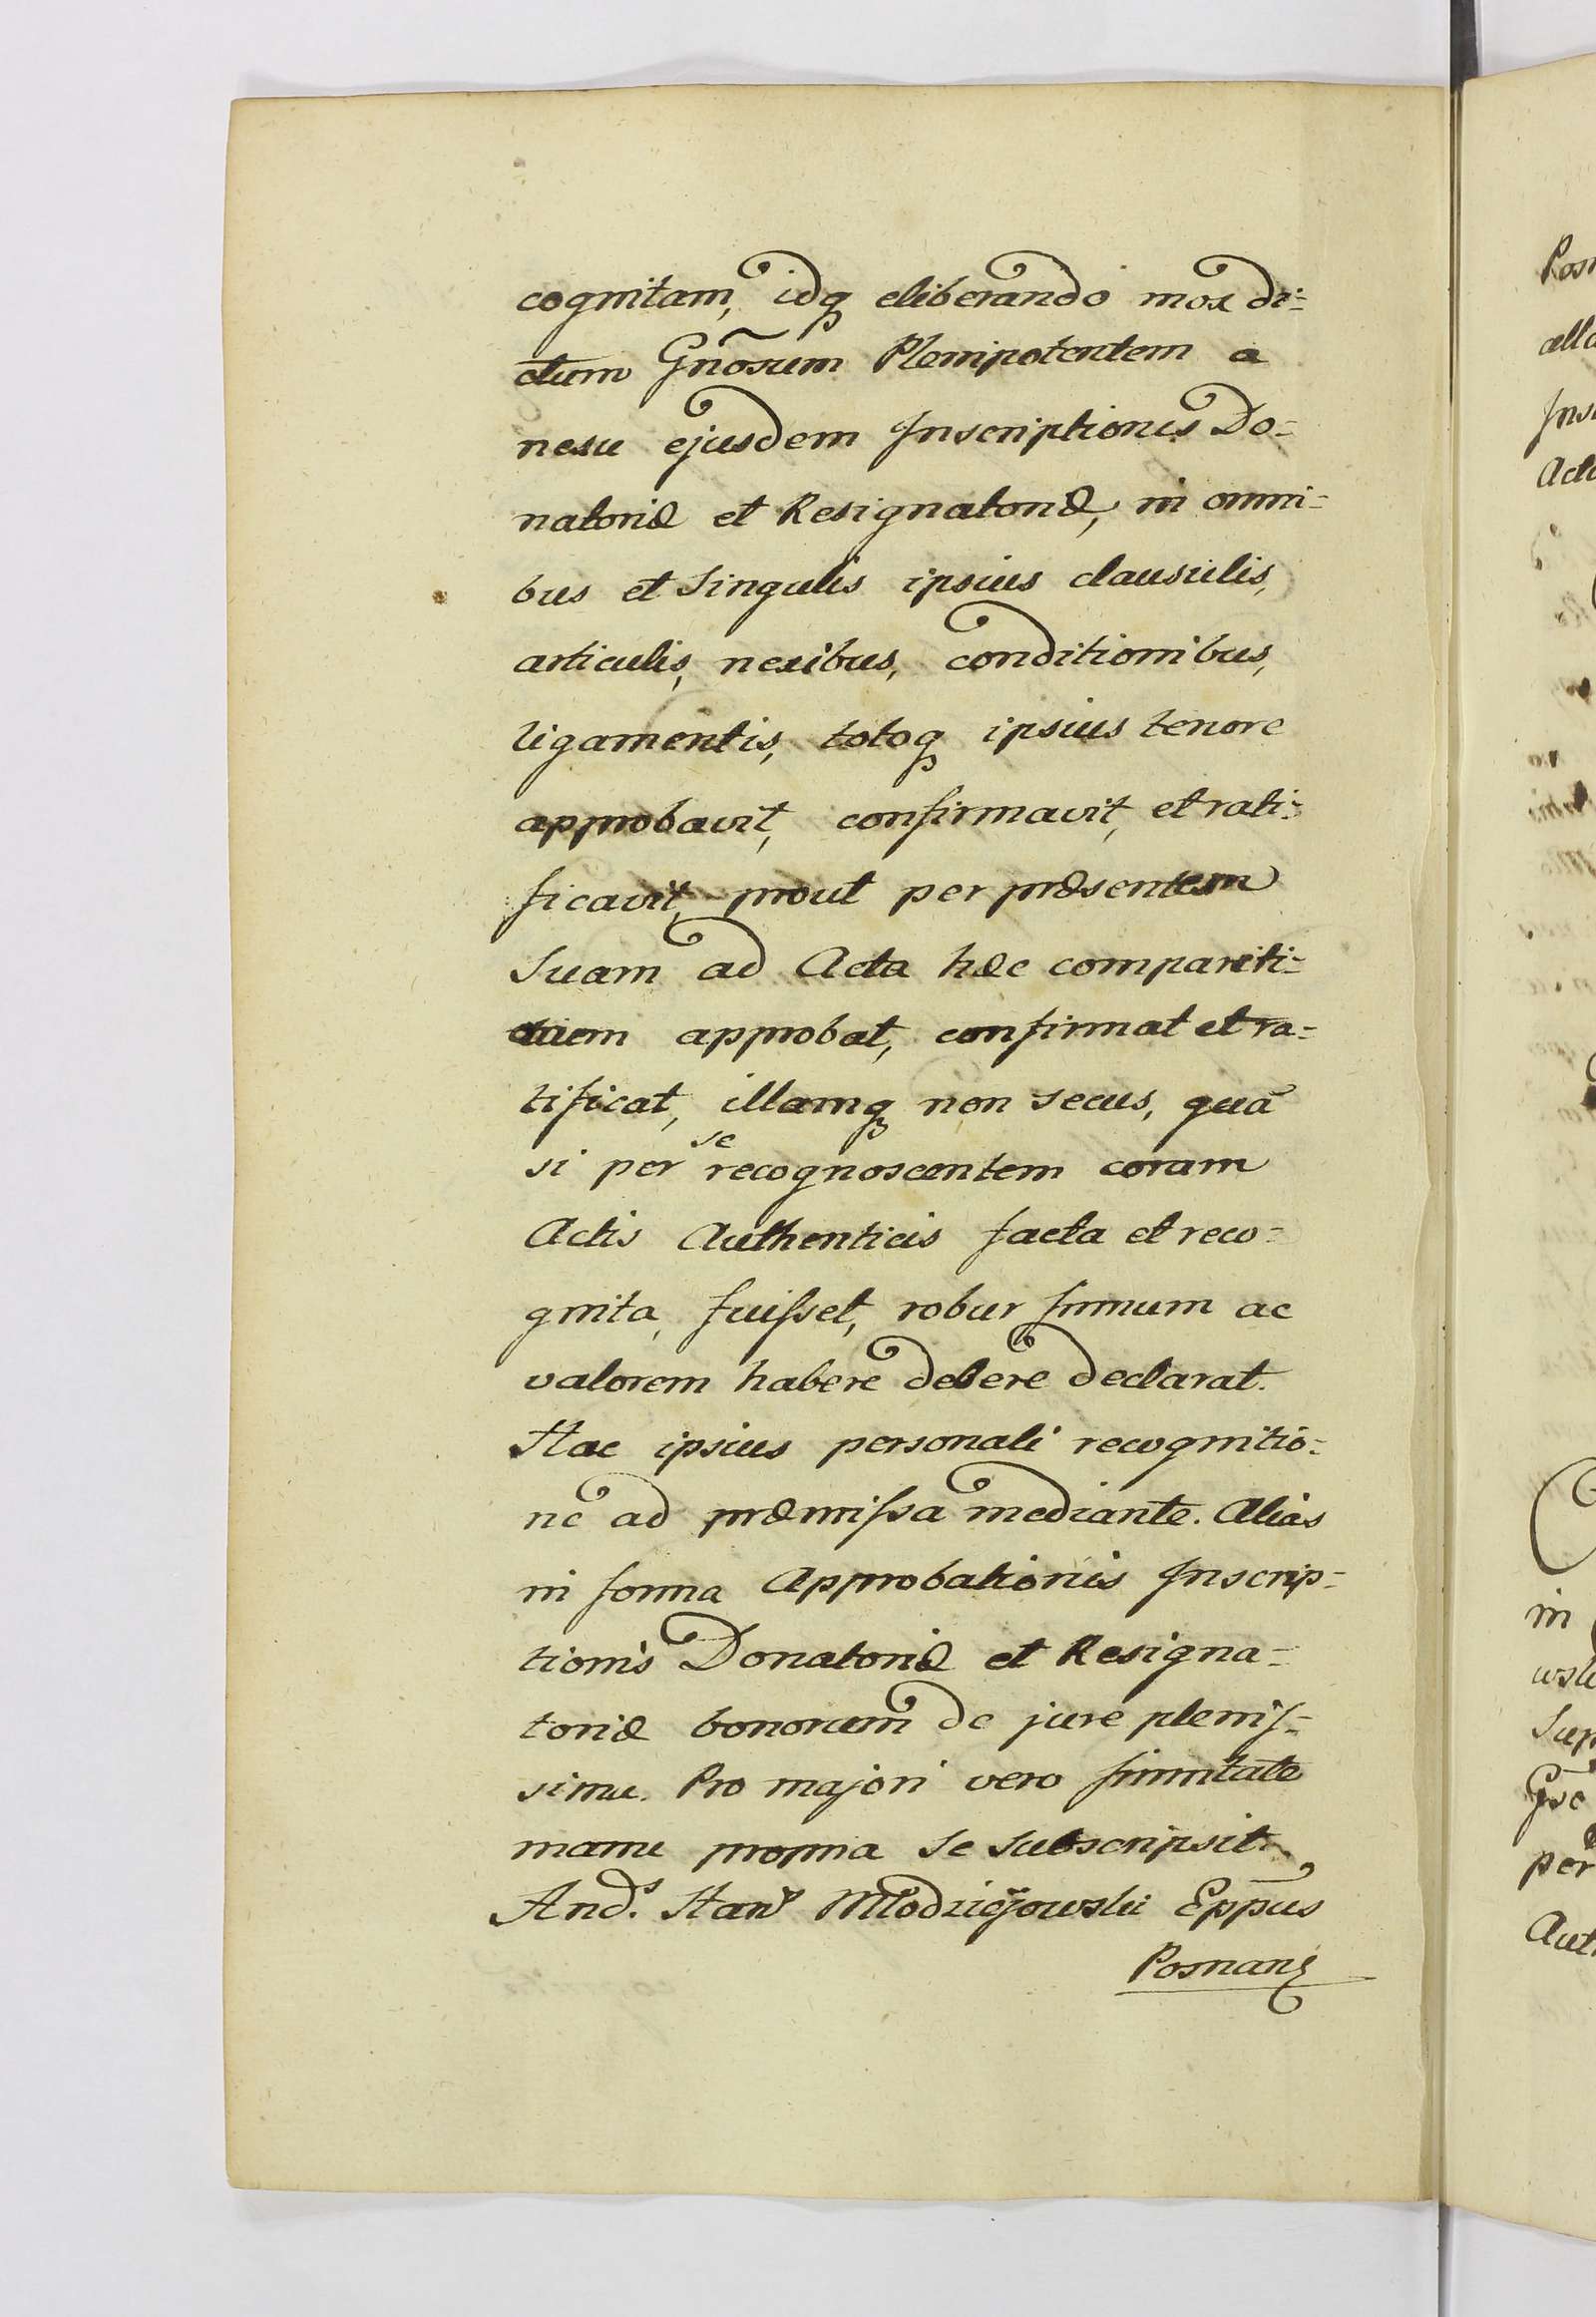 cognitam, idq eliberando mox di=
ctum Gnõsum Plenipotentem a
nexu ejusdem Inscriptionis Do=
natoriæ et Resignatoriæ, in omni=
bus et Singulis ipsius clausulis,
articulis, nexibus, conditionibus,
ligamentis, totoq ipsius tenore
approbavit, confirmavit, et rati=
ficavit, prout per præsentem
Suam ad Acta hæc compariti=
onem approbat, confirmat et ra=
tificat, illamq non secus, quã
si per se recognoscentem coram
Actis Authenticis facta et reco=
gnita, fuisset, robur firmum ac
valorem habere debere declarat.
Hac ipsius personali recognitio=
ne ad præmissa mediante. Alias
in forma Approbationis Inscrip=
tionis Donatoriæ et Resigna=
toriæ bonorum de jure plenis=
simo. Pro majori vero firmitate
manu propria Se Subscripsit.
And.s Stan. Młodziejowski Epp̃us
Posnan
Pos
Act
in
Sup
per
Aut